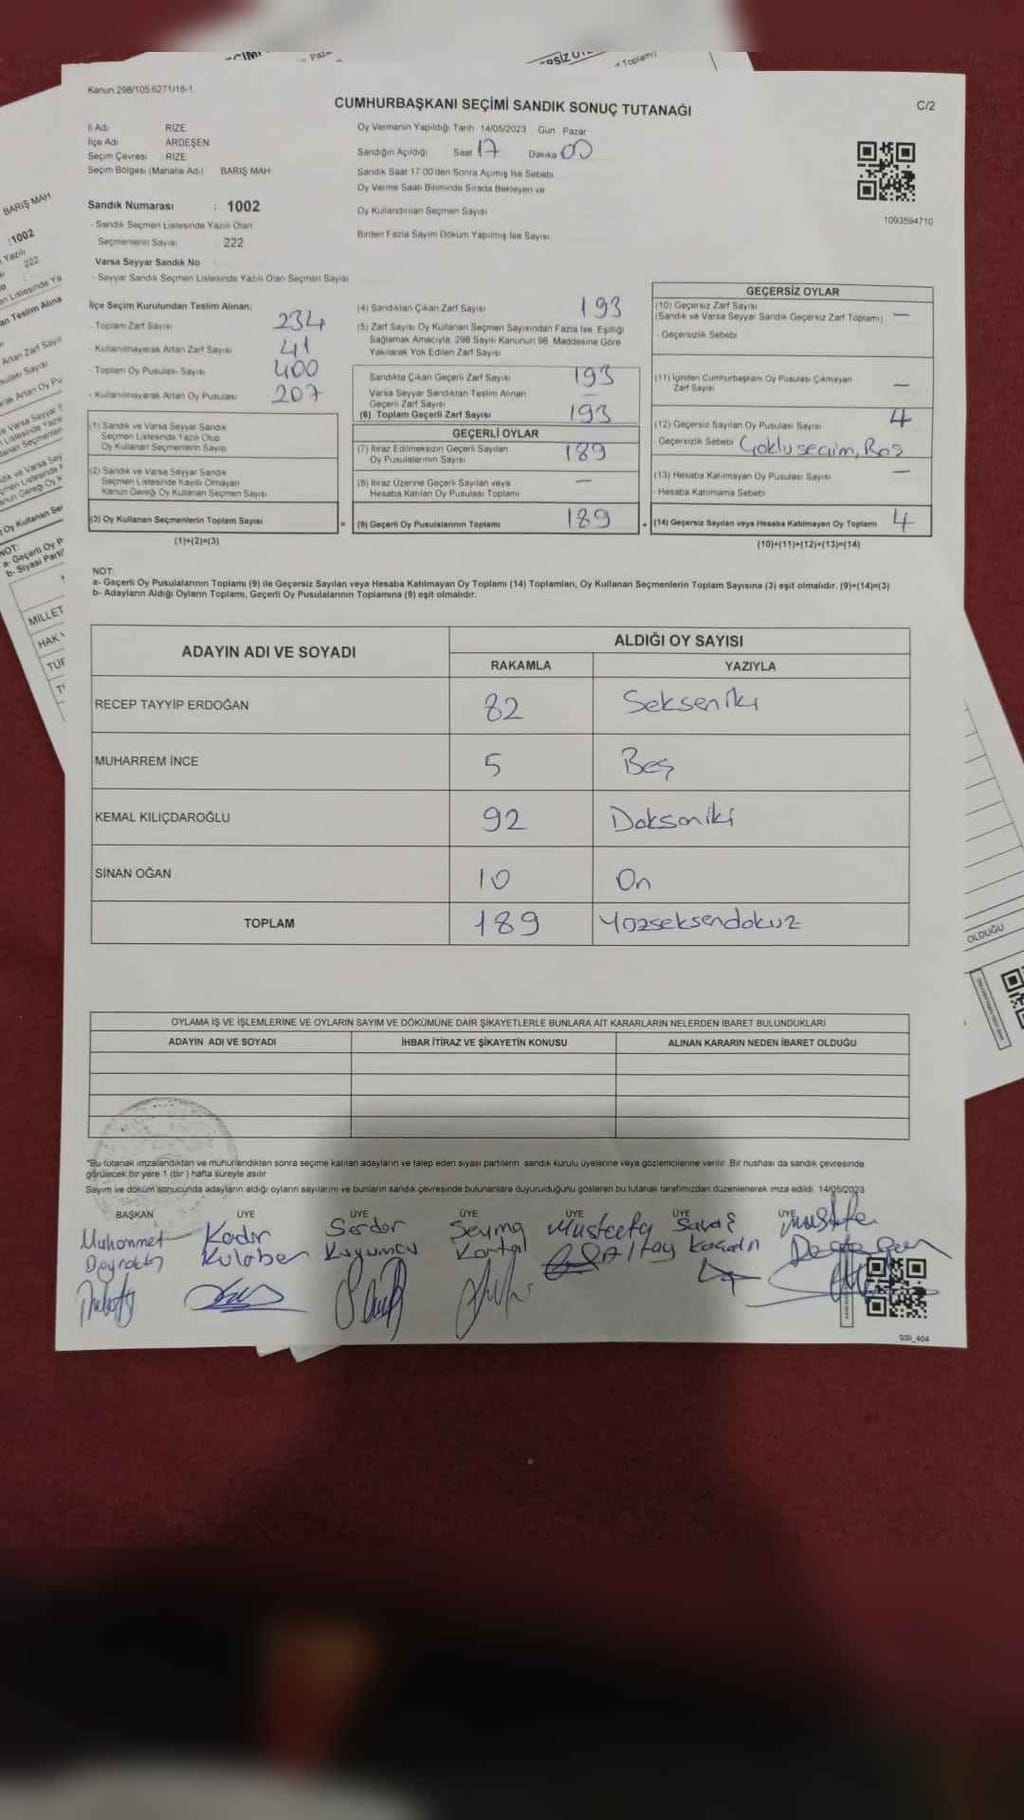 Kanun 298/105,6271/16-1
CUMHURBAŞKANI SEÇİMİ SANDIK SONUÇ TUTANAĞI
C/2
İl Adı RİZE
İlçe Adı ARDEŞEN
Seçim Çevresi : RİZE
Seçim Bölgesi (Mahalle Adı) BARIŞ MAH
Oy Vermenin Yapıldığı Tarih 14/05/2023 Gün Pazar
Sandığın Açıldığı Saat 17 Dakika 00
Sandık Saat 17:00'den Sonra Açılmış İse Sebebi
Oy Verme Saati Bitiminde Sırada Bekleyen ve
Oy Kullandırılan Seçmen Sayısı
Birden Fazla Sayım Döküm Yapılmış İse Sayısı
1093594710
Sandık Numarası : 1002
- Sandık Seçmen Listesinde Yazılı Olan
Seçmenlerin Sayısı 222
Varsa Seyyar Sandık No
- Seyyar Sandık Seçmen Listesinde Yazılı Olan Seçmen Sayısı
İlçe Seçim Kurulundan Teslim Alınan:
- Toplam Zarf Sayısı 234
- Kullanılmayarak Artan Zarf Sayısı 41
- Toplam Oy Pusulası Sayısı 400
- Kullanılmayarak Artan Oy Pusulası 207
(1) Sandık ve Varsa Seyyar Sandık
Seçmen Listesinde Yazılı Olup
Oy Kullanan Seçmenlerin Sayısı
(2) Sandık ve Varsa Seyyar Sandık
Seçmen Listesinde Kayıtlı Olmayan
Kanun Gereği Oy Kullanan Seçmen Sayısı
(3) Oy Kullanan Seçmenlerin Toplam Sayısı
(1)+(2)=(3)
(4) Sandıktan Çıkan Zarf Sayısı 193
(5) Zarf Sayısı Oy Kullanan Seçmen Sayısından Fazla İse, Eşitliği
Sağlamak Amacıyla, 298 Sayılı Kanunun 98. Maddesine Göre
Yakılarak Yok Edilen Zarf Sayısı
Sandıkta Çıkan Geçerli Zarf Sayısı 193
Varsa Seyyar Sandıktan Teslim Alınan
Geçerli Zarf Sayısı
(6) Toplam Geçerli Zarf Sayısı 193
GEÇERLİ OYLAR
(7) İtiraz Edilmeksizin Geçerli Sayılan
Oy Pusulalarının Sayısı 189
(8) İtiraz Üzerine Geçerli Sayılan veya
Hesaba Katılan Oy Pusulası Toplamı —
= (9) Geçerli Oy Pusulalarının Toplamı 189
GEÇERSİZ OYLAR
(10) Geçersiz Zarf Sayısı
(Sandık ve Varsa Seyyar Sandık Geçersiz Zarf Toplamı) —
- Geçersizlik Sebebi
(11) İçinden Cumhurbaşkanı Oy Pusulası Çıkmayan
Zarf Sayısı —
(12) Geçersiz Sayılan Oy Pusulası Sayısı 4
- Geçersizlik Sebebi Çoklu seçim, Boş
(13) Hesaba Katılmayan Oy Pusulası Sayısı —
- Hesaba Katılmama Sebebi
+ (14) Geçersiz Sayılan veya Hesaba Katılmayan Oy Toplamı 4
(10)+(11)+(12)+(13)=(14)
NOT:
a- Geçerli Oy Pusulalarının Toplamı (9) ile Geçersiz Sayılan veya Hesaba Katılmayan Oy Toplamı (14) Toplamları, Oy Kullanan Seçmenlerin Toplam Sayısına (3) eşit olmalıdır. (9)+(14)=(3)
b- Adayların Aldığı Oyların Toplamı, Geçerli Oy Pusulalarının Toplamına (9) eşit olmalıdır.
ADAYIN ADI VE SOYADI
ALDIĞI OY SAYISI
RAKAMLA YAZIYLA
RECEP TAYYİP ERDOĞAN 82 Seksen iki
MUHARREM İNCE 5 Beş
KEMAL KILIÇDAROĞLU 92 Doksaniki
SİNAN OĞAN 10 On
TOPLAM 189 Yüzseksendokuz
OYLAMA İŞ VE İŞLEMLERİNE VE OYLARIN SAYIM VE DÖKÜMÜNE DAİR ŞİKAYETLERLE BUNLARA AİT KARARLARIN NELERDEN İBARET BULUNDUKLARI
ADAYIN ADI VE SOYADI İHBAR İTİRAZ VE ŞİKAYETİN KONUSU ALINAN KARARIN NEDEN İBARET OLDUĞU
*Bu tutanak imzalandıktan ve mühürlendikten sonra seçime katılan adayların ve talep eden siyasi partilerin sandık kurulu üyelerine veya gözlemcilerine verilir. Bir nushası da sandık çevresinde
görülecek bir yere 1 (bir ) hafta süreyle asılır
Sayım ve döküm sonucunda adayların aldığı oyların sayılarını ve bunların sandık çevresinde bulunanlara duyurulduğunu gösteren bu tutanak tarafımızdan düzenlenerek imza edildi. 14/05/2023
BAŞKAN ÜYE ÜYE ÜYE ÜYE ÜYE
Muhammet Kadir Serdar Seyma Savaş Mustafa
Kuyumcu Kartal Altay
SSI_404
BARIŞ MAH
:1002
222
NOT:
MILLET
OLDUĞU